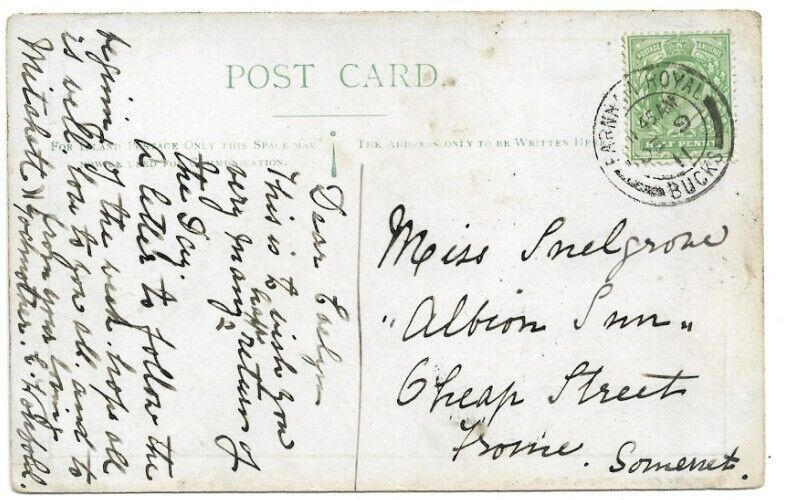 POST CARD.
FOR INLAND POSTAGE ONLY THIS SPACE MAY
NOW BE USED FOR COMMUNICATION.
THE ADDRESS ONLY TO BE WRITTEN HERE
POSTAGE & REVENUE
HALF PENNY
FARNHAM ROYAL
BUCKS
45 AM
11
Miss Snelgrove
"Albion Inn"
Cheap Street
Frome.
Somerset.
Dear Evelyn
This is to wish you
very many happy return of
the Day.
a letter to follow the
begin of the week. hope all
is well. love to you all. and to
from your loving